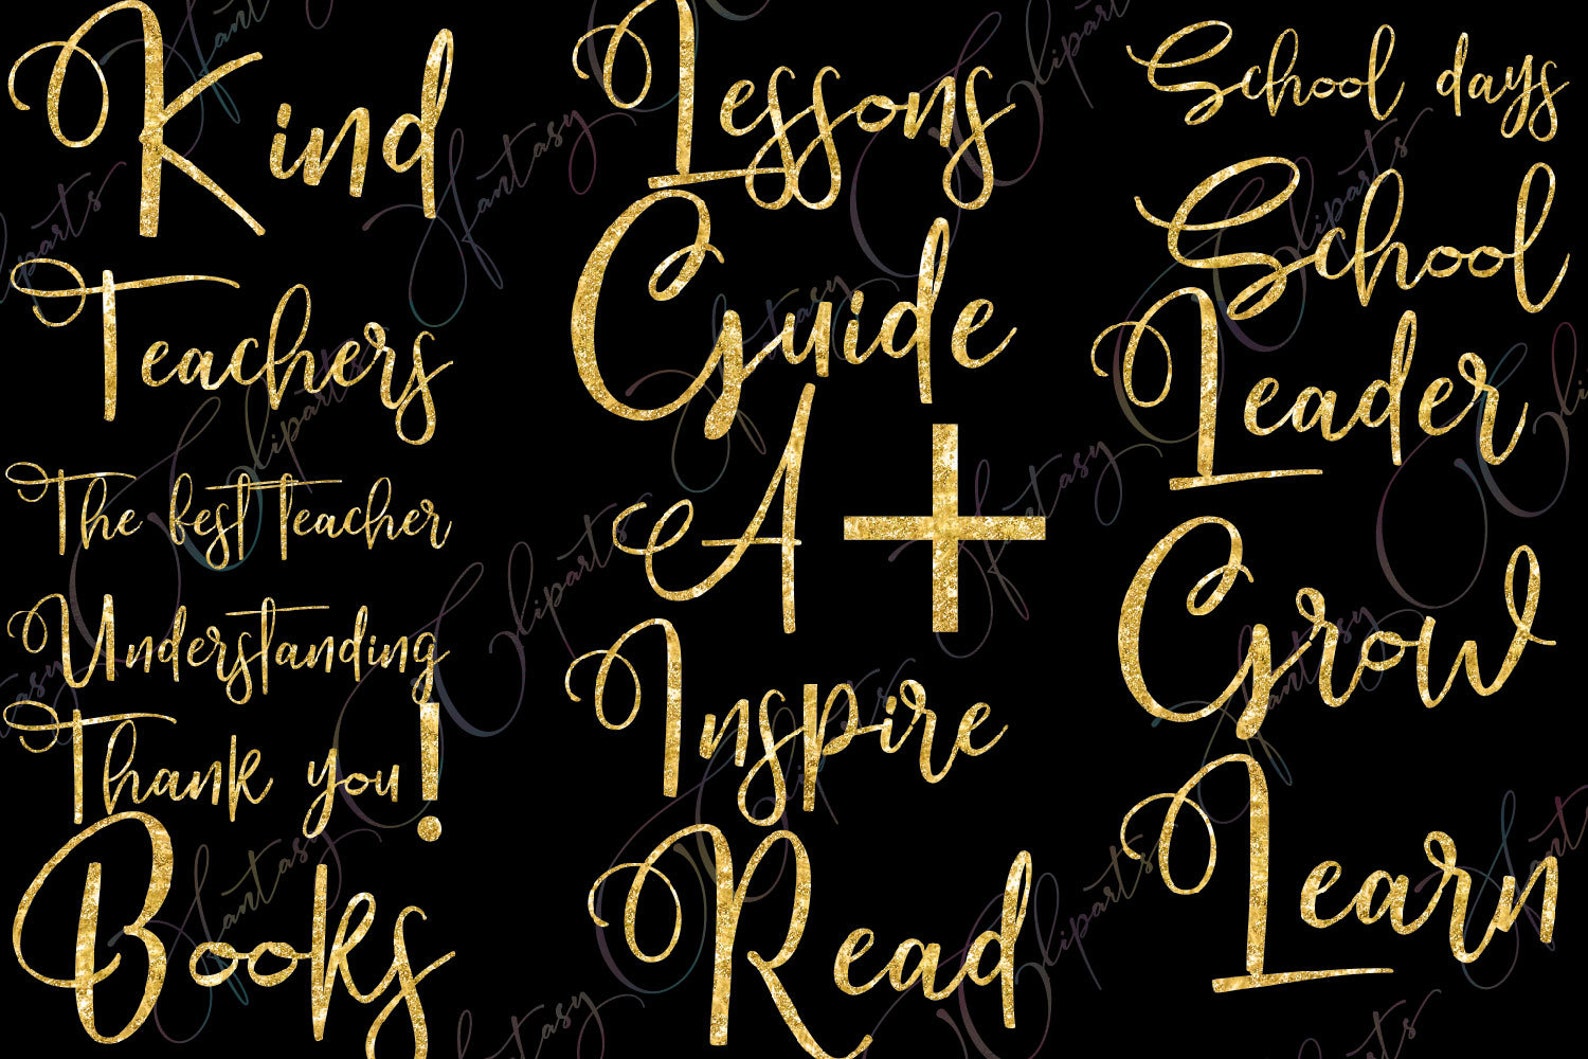 Kind
Teachers
The best teacher
Understanding
Thank you!
Books
Lessons
Guide
A+
Inspire
Read
School days
School
Leader
Grow
Learn
Fantasy Cliparts